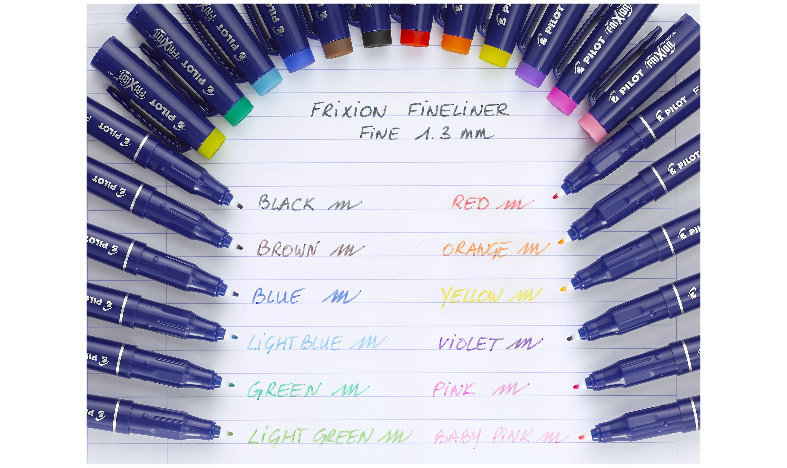 PILOT
FRIXION
PILOT
FRIXION
PILOT
PILOT
PILOT
FRIXION
PILOT
FRIXION
PILOT
PILOT
FRIXION FINELINER
FINE 1.3 mm
PILOT
PILOT
PILOT
PILOT
BLACK m
RED m
BROWN m
ORANGE m
BLUE m
YELLOW m
LIGHT BLUE m
VIOLET m
GREEN m
PINK m
LIGHT GREEN m
BABY PINK m